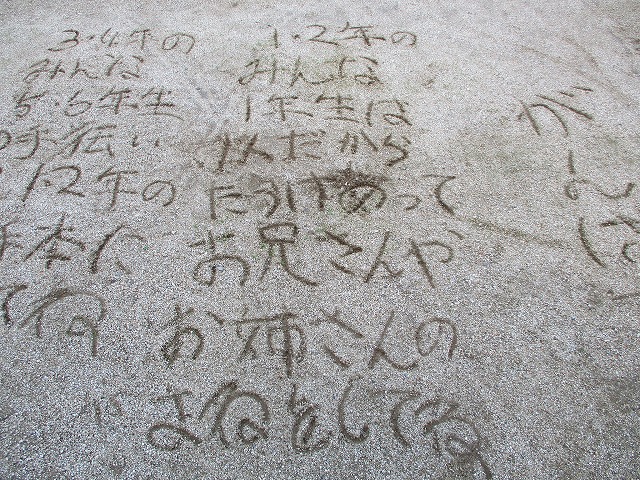 3・4年の
みんな
5・6年生
手伝い
1・2年の
手本に
ね
1・2年の
みんな
1年生は
だから
たすけあって
お兄さんや
お姉さんの
まねをしてね
が
ん
ば